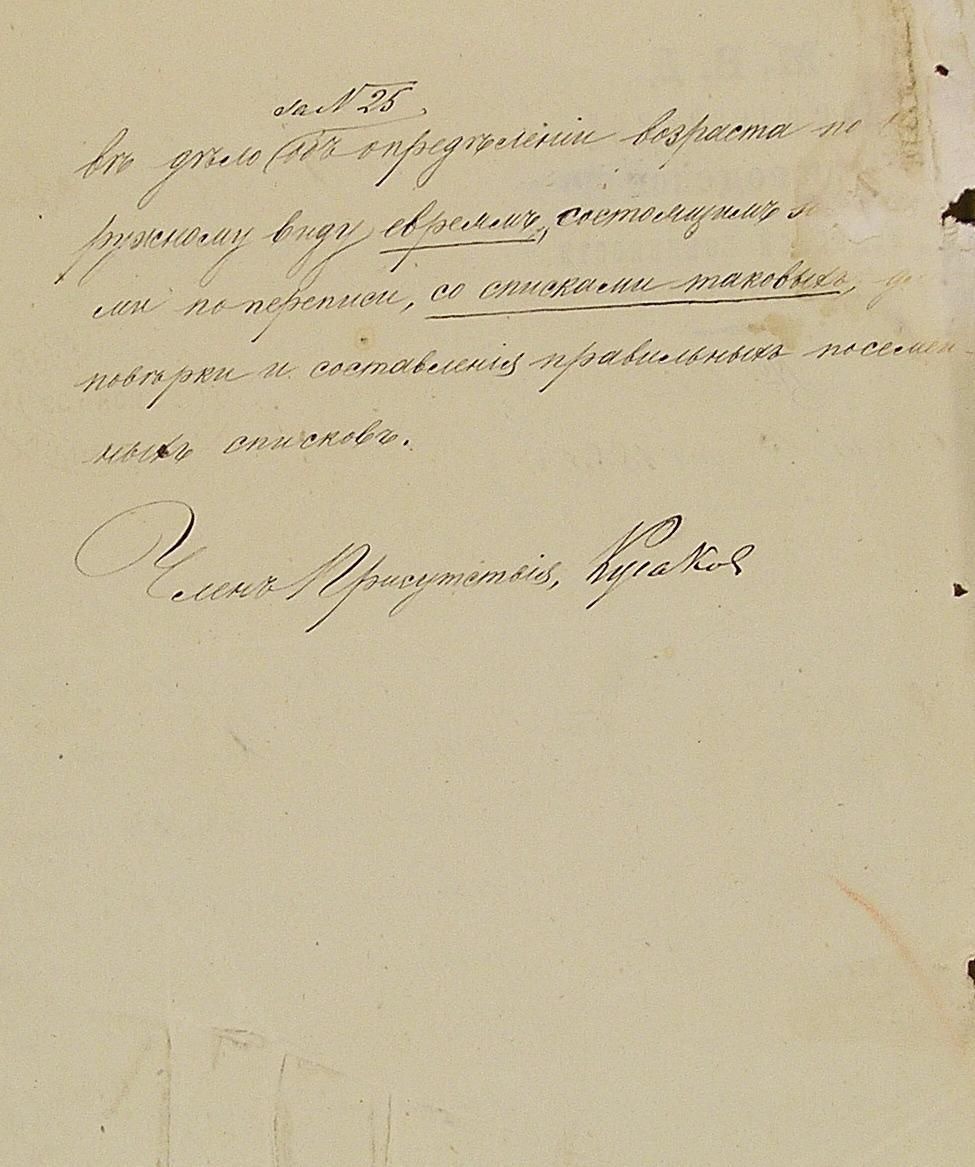 за № 25
въ дѣло объ опредѣленіи возраста по
ружному виду евреямъ, состоящимъ
ми по переписи, со списками таковыхъ,
повѣрки и составленія правильныхъ посемей-
ныхъ списковъ.
Членъ Присутствія,